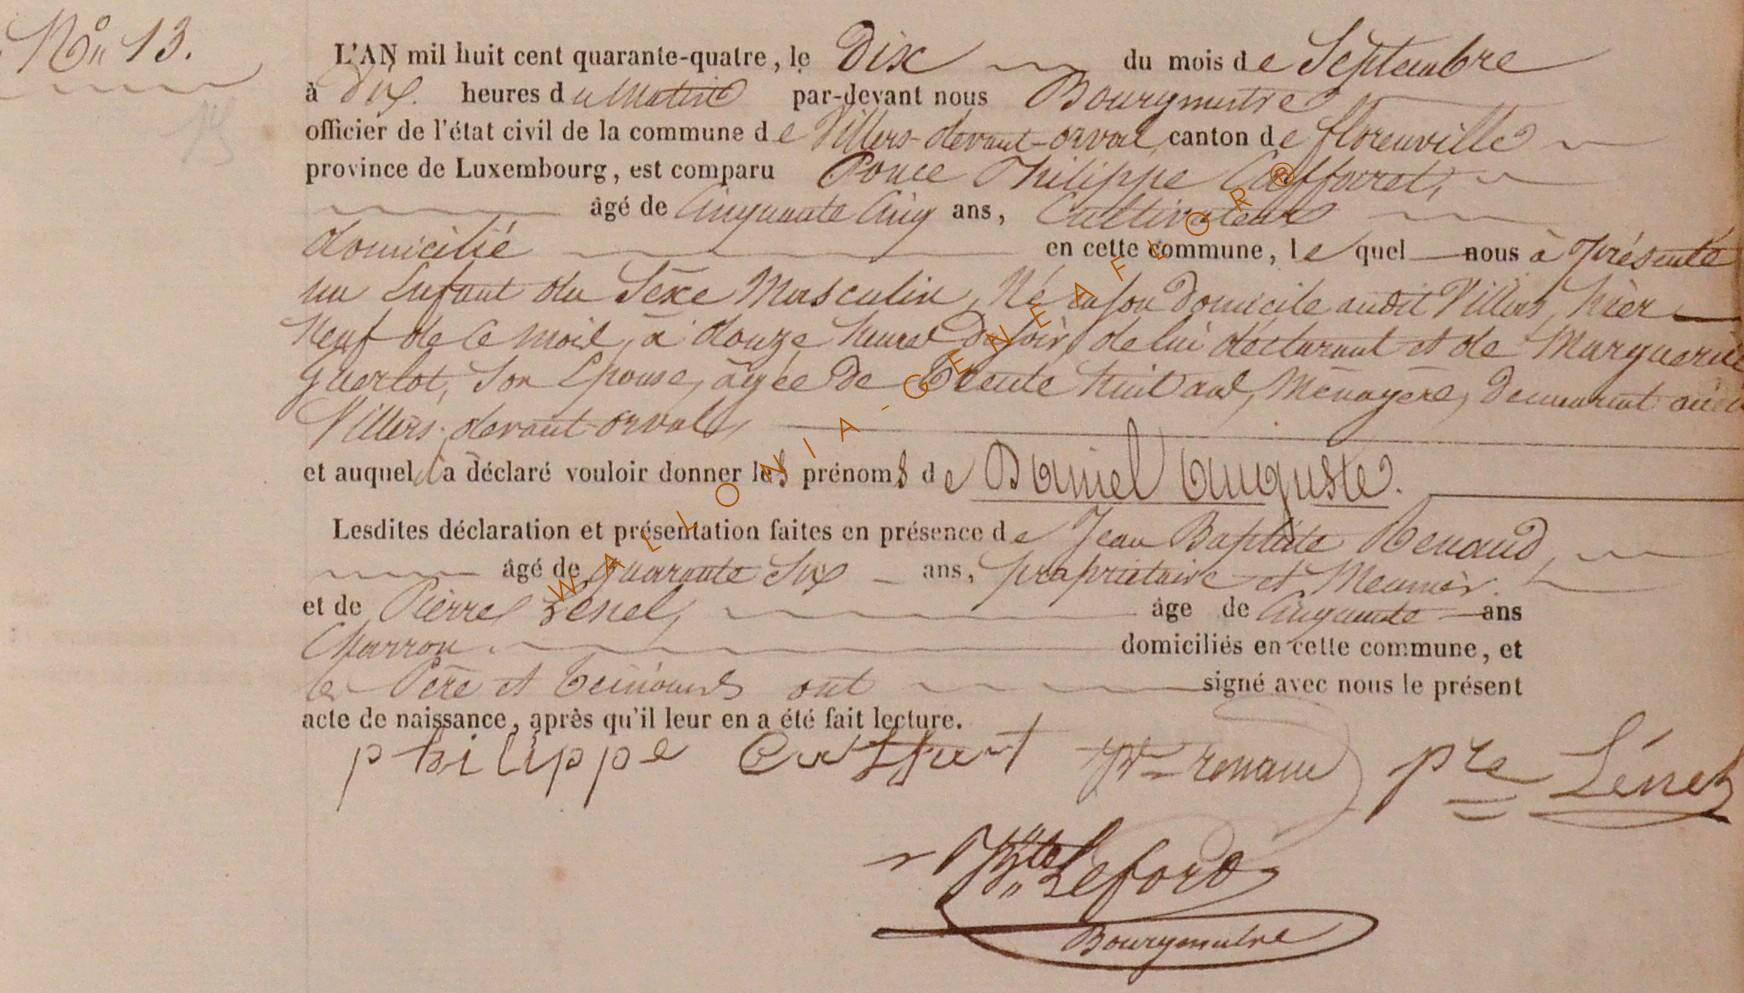 No 13.
L'AN mil huit cent quarante-quatre, le Dix du mois de Septembre
à dix. heures du Matin par-devant nous Bourgmestre
officier de l'état civil de la commune de Villers-devant-orval canton de florenville
province de Luxembourg, est comparu Ponce Philippe
âgé de Cinquante Cinq ans, Cultivateur
domicilié en cette commune, le quel nous à présenté
un Enfant du Sèxe Masculin, Né en son Domicile audit Villers, hièr
Neuf de Ce mois, à douze heures du soir, de lui déclarant et de Marguerite
Guerlot, Son Epouse, agée De Trente huit ans, Ménagère, Demeurant audit
Villers-devant-orval,
et auquel il a déclaré vouloir donner les prénoms de Daniel Auguste.
Lesdites déclaration et présentation faites en présence de Jean Baptiste Renaud,
âgé de quarante Six ans, propriétaire et Meunièr.
et de Pierre Lenel, âge de Cinquante ans
Charron. domiciliés en cette commune, et
les Père et témoins ont signé avec nous le présent
acte de naissance, après qu'il leur en a été fait lecture.
philippe renaud pre
Bourgmestre
WALLONIA-GENEAFLOR®